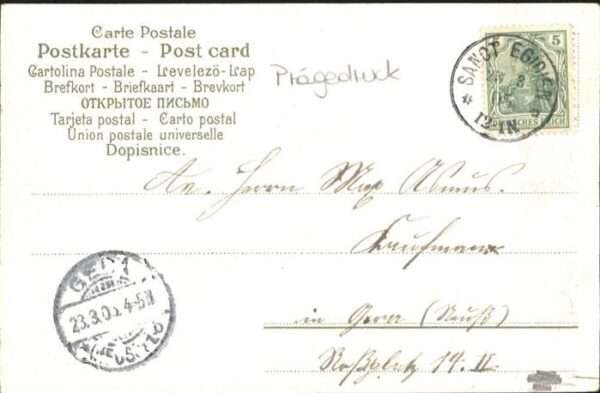 Carte Postale
Postkarte - Post card
Cartolina Postale - Levelező-Lap
Brefkort - Briefkaart - Brevkort
ОТКРЫТОЕ ПИСЬМО
Tarjeta postal - Carto postal
Union postale universelle
Dopisnice.
Prägedruck
5
SANCT EGIDIEN
12-1N
An Herrn Max
Kaufmann
in Gera (Reuß)
Roßplatz 14. II
23.3.05. 4-5N